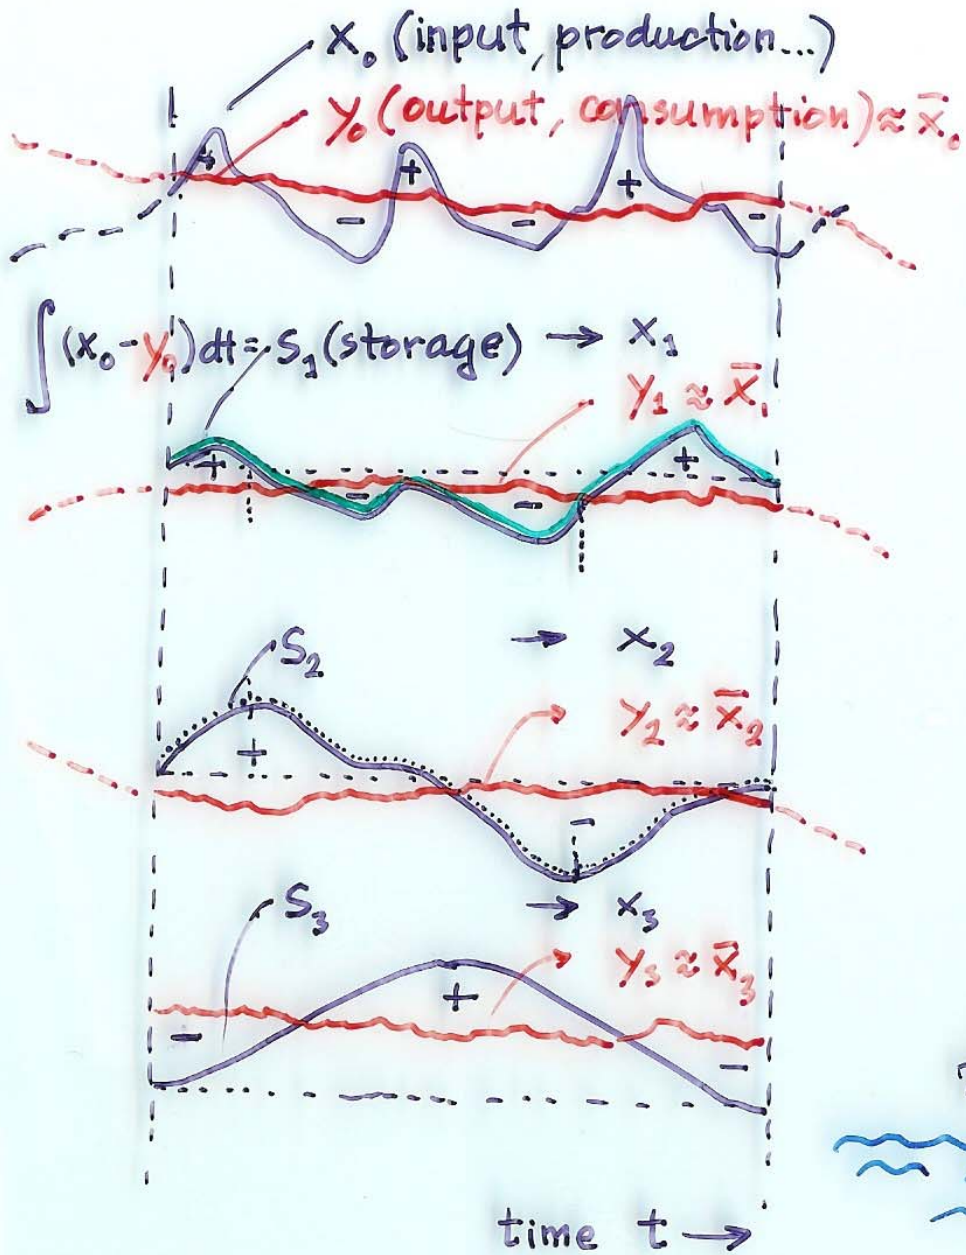 x₀ (input, production...)
y₀ (output, consumption) ≈ x̄₀
+ + +
- - -
∫(x₀-y₀)dt = S₁ (storage) → x₁
y₁ ≈ x̄₁
+ - - +
S₂ → x₂
y₂ ≈ x̄₂
+ -
S₃ → x₃
y₃ ≈ x̄₃
- + -
time t →